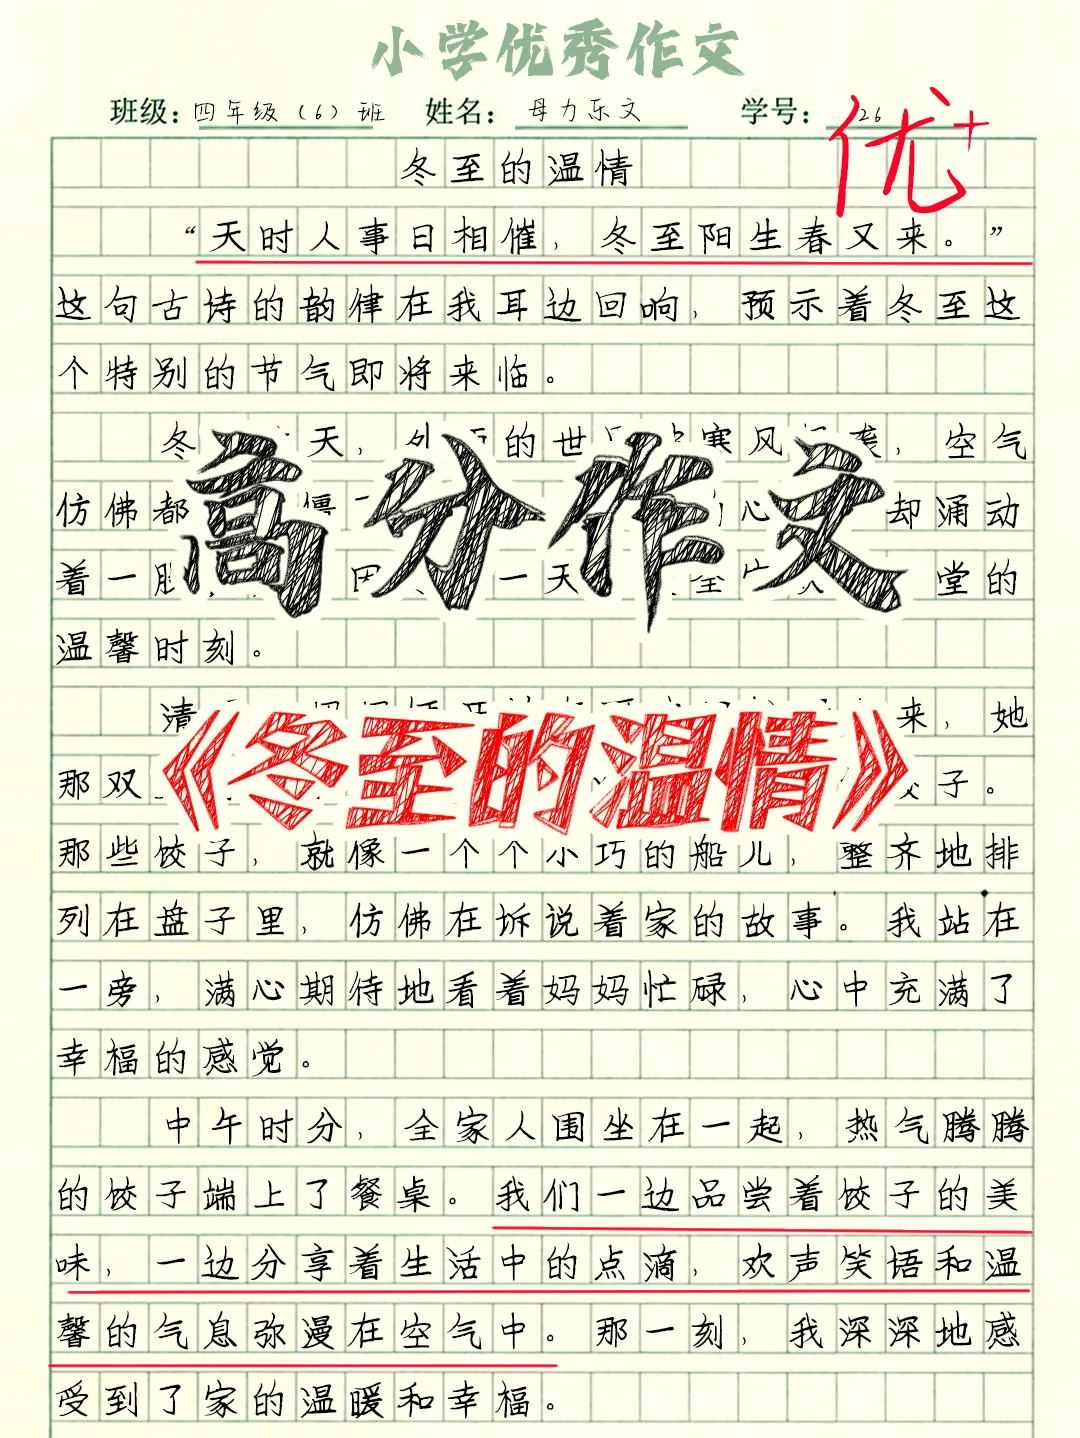 小学优秀作文
班级: 四年级（6）班 姓名: 母力乐文 学号: 26
优+
冬至的温情
“天时人事日相催，冬至阳生春又来。”
这句古诗的韵律在我耳边回响，预示着冬至这
个特别的节气即将来临。
冬 天，外 的世 寒风 袭，空气
仿佛都 心 却涌动
着一股 因 一天 全 堂的
温馨时刻。
高分作文
清 来，她
那双 饺子。
《冬至的温情》
那些饺子，就像一个个小巧的船儿，整齐地排
列在盘子里，仿佛在诉说着家的故事。我站在
一旁，满心期待地看着妈妈忙碌，心中充满了
幸福的感觉。
中午时分，全家人围坐在一起，热气腾腾
的饺子端上了餐桌。我们一边品尝着饺子的美
味，一边分享着生活中的点滴，欢声笑语和温
馨的气息弥漫在空气中。那一刻，我深深地感
受到了家的温暖和幸福。